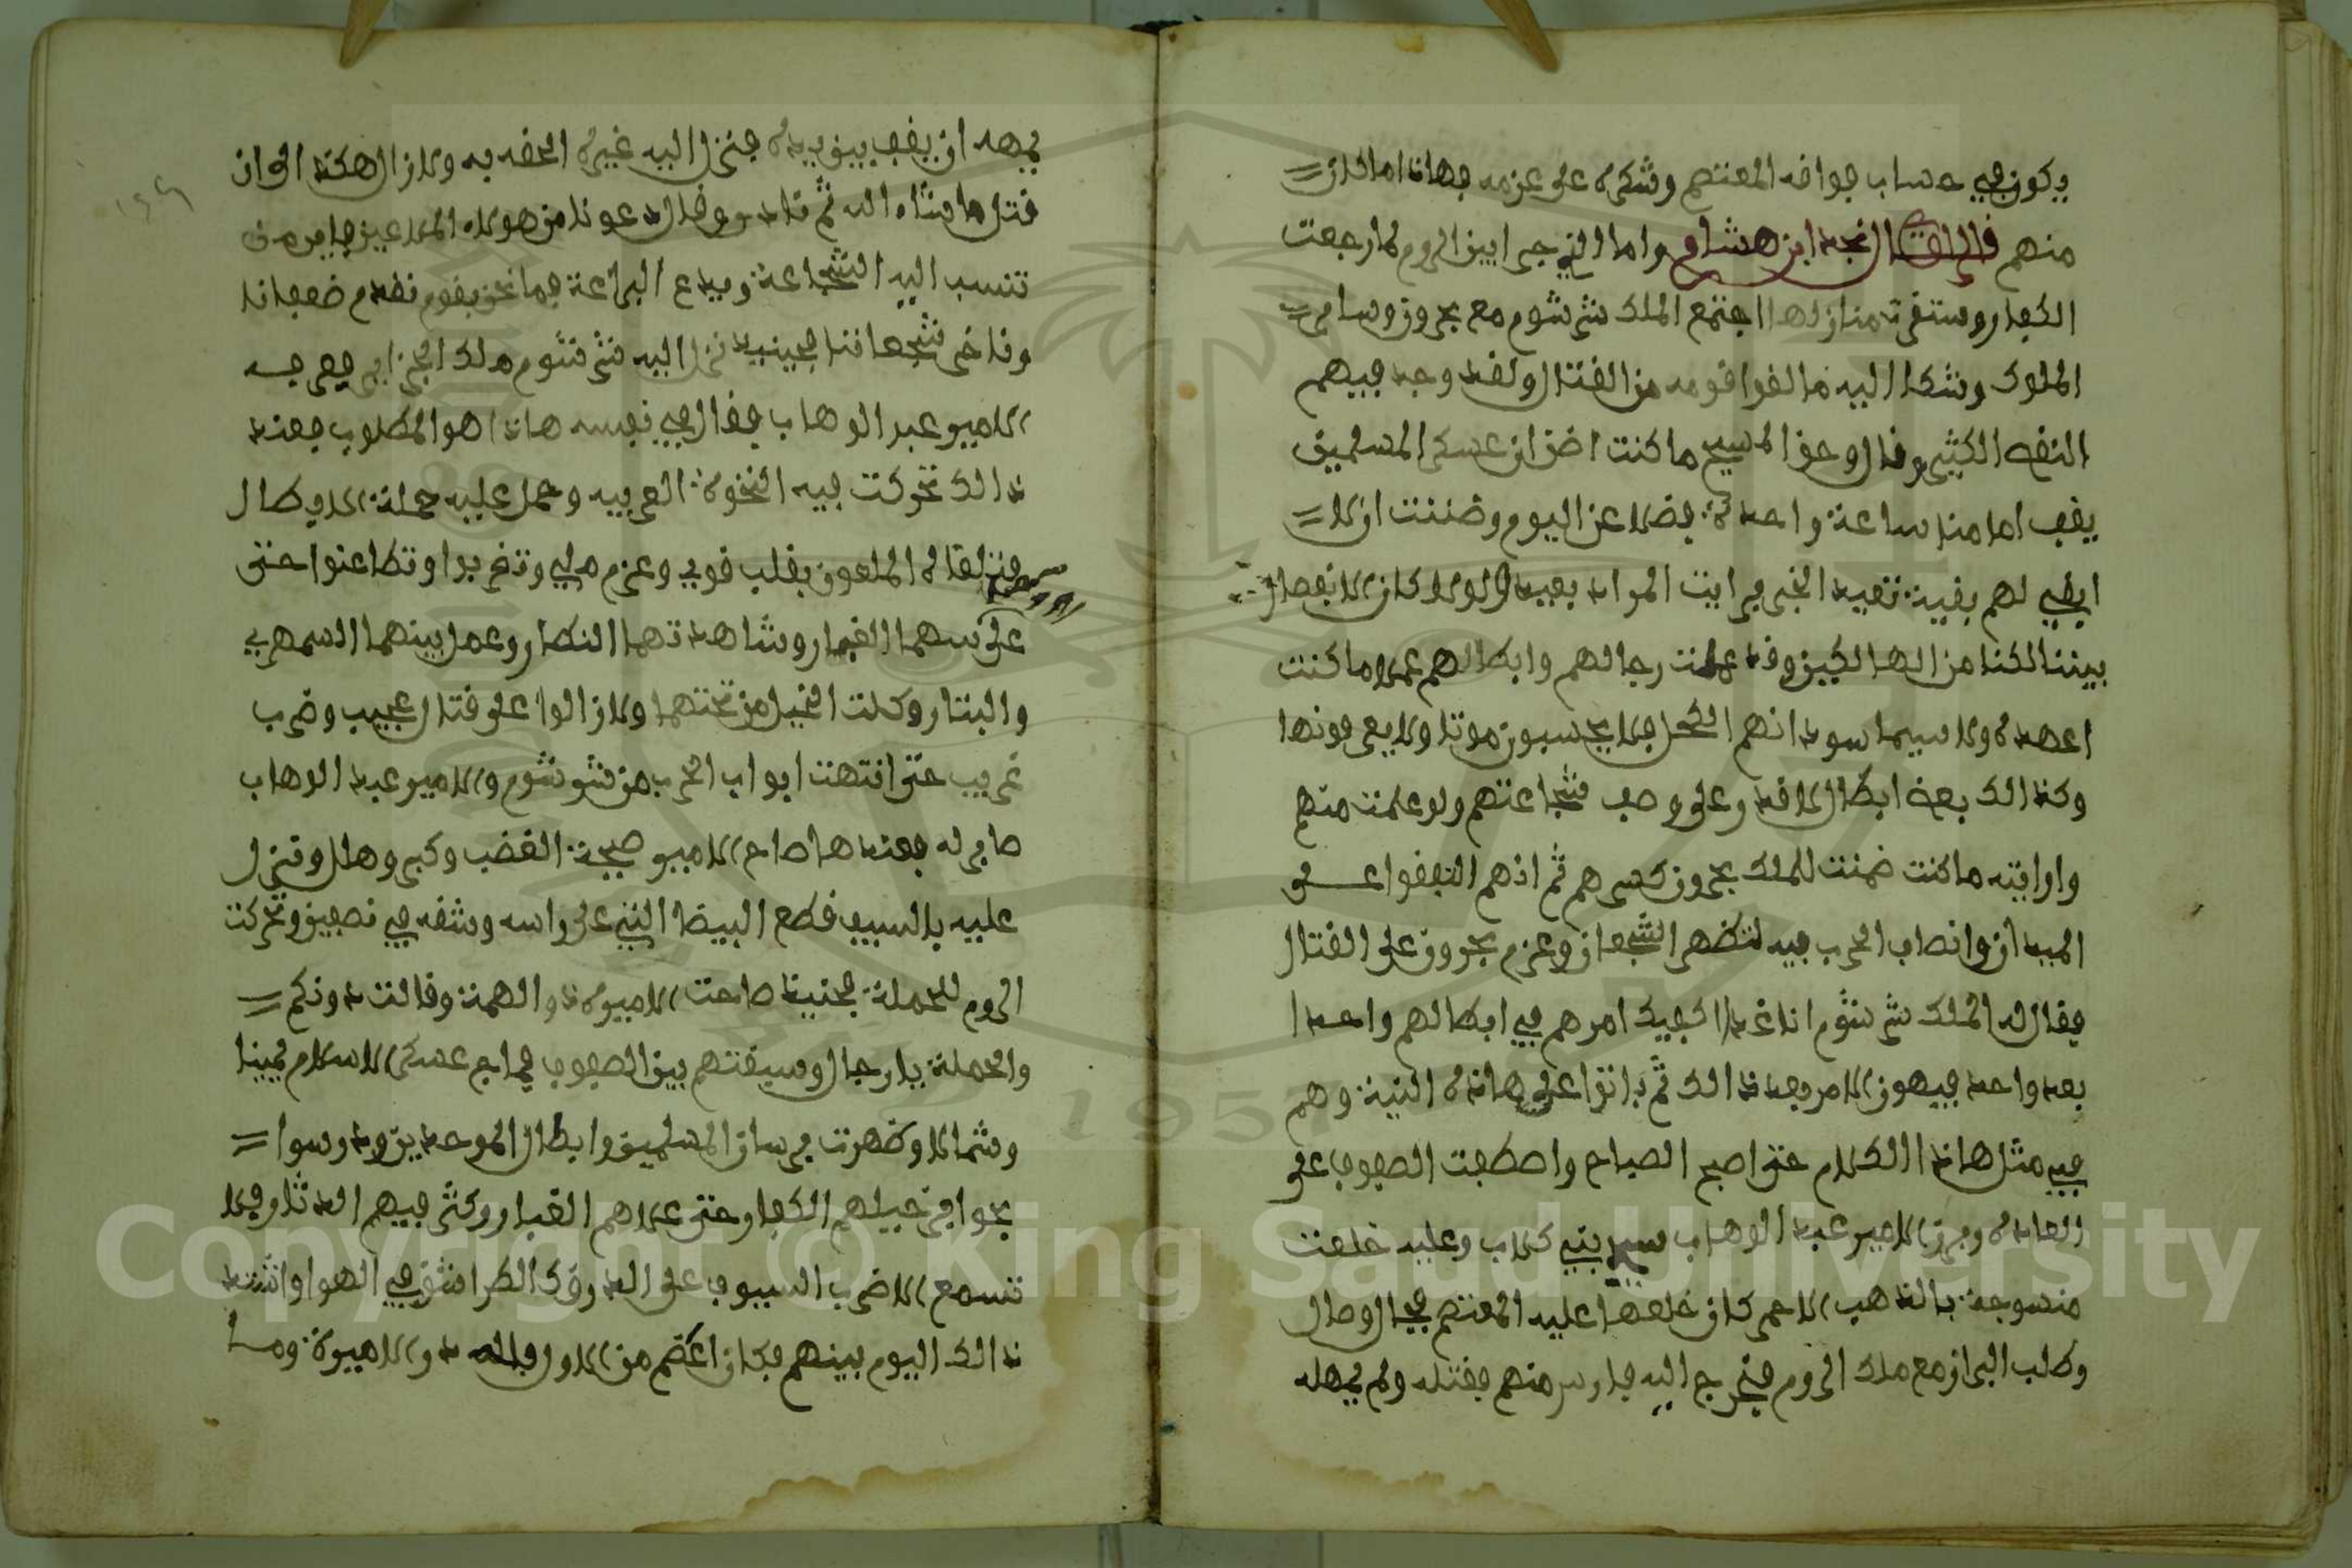 ويكون في حساب فوافقه المعتصم وشكره على عزمه فهاذا ما كان
منهم قال الراوي نجد ابن هشام واما الذي جرا بين الروم لما رجعت
الكفار وستقرت منازلها اجتمع الملك شرشوم مع بحرون وسامر
الملوك وشكا اليه ما لقوا قومه من القتال ولقد وجد فيهم
النقص الكثير وقال وحق المسيح ما كنت اضن ان عسكر المسلمين
يقف امامنا ساعة واحدة فضلا عن اليوم وضننت ان لا
ابقي لهم بقية تعيد الخبر فرايت المراد بعيد ولولا كان الانفصال
بيننا لكنا من الهالكين وقد عملت رجالهم وابطالهم عملا ما كنت
اعهده ولا سيما سودانهم الكحل فلا يحسبون موتا ولا يعرفونها
وكذالك بعض ابطال لا قدر على وصف شجاعتهم ولو علمت منهم
وارايته ما كنت ضمنت للملك بحرون كسرهم ثم انهم اتفقوا على
الميدان وانصاب الحرب فيه لتظهر الشجعان وعزم بحرون على القتال
فقال له الملك شرشوم انا غدا اكفيك امرهم في ابطالهم واحدا
بعد واحد فيهون الامر بعد ذالك ثم باتوا على هاذه النية وهم
في مثل هاذا الكلام حتى اصبح الصباح واصطفت الصفوف على
العادة وبرز الامير عبد الوهاب سيد بني كلاب وعليه خلعت
منسوجة بالذهب الاحمر كان خلعها عليه المعتصم فجال وصال
وطلب البراز مع ملك الروم فخرج اليه فارس منهم فقتله ولم يمهله
يمهد ان يقف بين يديه فنزل اليه غيره الحقه به ولازال هكذا الى ان
قتل ما شاء الله ثم نادا وقال دعونا من هولاء الملاعين فاين من
تنسب اليه الشجاعة ويدع البراعة فما نحن بقوم نقدم ضعفانا
وناخر شجعاننا فحينيذ نزل اليه شرشوم ملك الجزاير فعرفه
الامير عبد الوهاب فقال في نفسه هاذا هو المطلوب فعند
ذالك تحركت فيه النخوة العربيه وحمل عليه حملة الابطال
فتلقاه الملعون بقلب قوي وعزم ملي وتضربوا وتطاعنوا حتى
على راسهما الغبار وشاهدتهما النظار وعمل بينهما السمهري
والبتار وكلت الخيل من تحتهما ولازالوا على قتال عجيب وضرب
غريب حتى انتهت ابواب الحرب من شرشوم والامير عبد الوهاب
صابر له فعندها صاح الامير صيحة الغضب وكبر وهلل ونزل
عليه بالسيف فطع البيضا التي على راسه وشقه في نصفين وتحركت
الروم للحملة فحنيذا صاحت الاميرة ذو الهمة وقالت دونكم
والحملة يا رجال وسبقتهم بين الصفوف فماج عسكر الاسلام يمينا
وشمالا وظهرت فرسان المسلمين وابطال الموحدين ودرسوا
بحوافر خيلهم الكفار حتى علاهم الغبار وكثر فيهم الدثار فلا
تسمع الا ضرب السيوف على الدرق كالطراشق في الهوا واشتد
ذالك اليوم بينهم فكان اعظم من الاول فلله در الاميرة وما